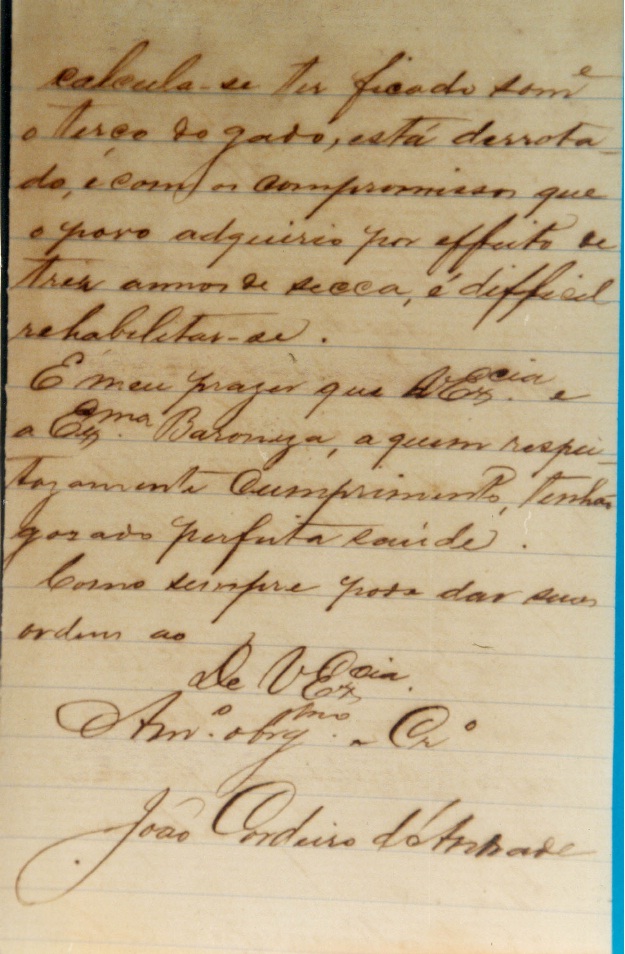 calcula-se ter ficado som^e
o terço do gado, está derrota-
do, e com os compromissos que
o povo adquirio por effeito de
trez annos de secca, é difficil
rehabilitar-se.
É meu prazer que VEx^cia. e
a Ex^ma. Baroneza, a quem respei-
tozamente cumprimento, tenhão
gozado perfeita saúde.
Como sempre pode dar suas
ordens ao
De VEx^cia.
Am^o. obrg^mo. e Cr^o
João Cordeiro d'Andrade